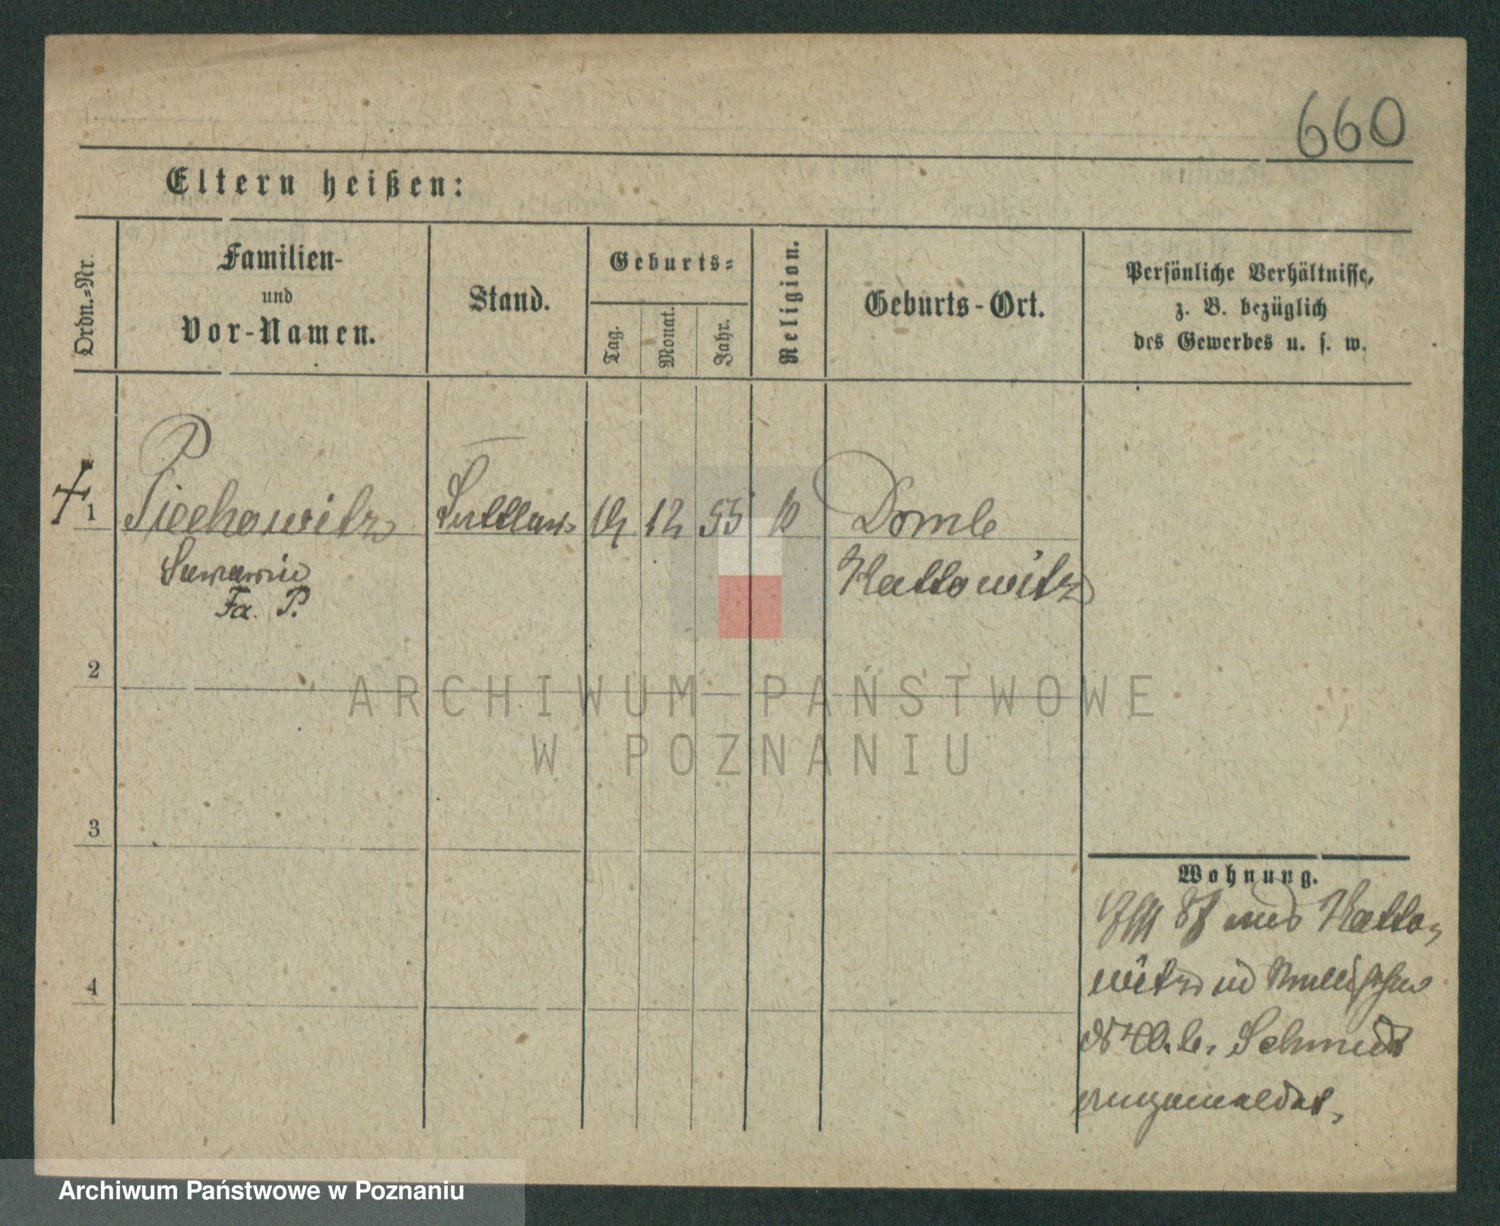 660
Eltern heißen:
Ordn.-Nr.
Familien-
und
Vor-Namen.
Stand.
Geburts-
Tag.
Monat.
Jahr.
Religion.
Geburts-Ort.
Persönliche Verhältnisse,
z. B. bezüglich
des Gewerbes u. s. w.
1
Piechowitz
12 55
Domb
Fa. P.
Kattowitz
2
ARCHIWUM PAŃSTWOWE
W POZNANIU
3
Wohnung.
aus Katto-
witz
4
Schmidt
angemeldet.
Archiwum Państwowe w Poznaniu